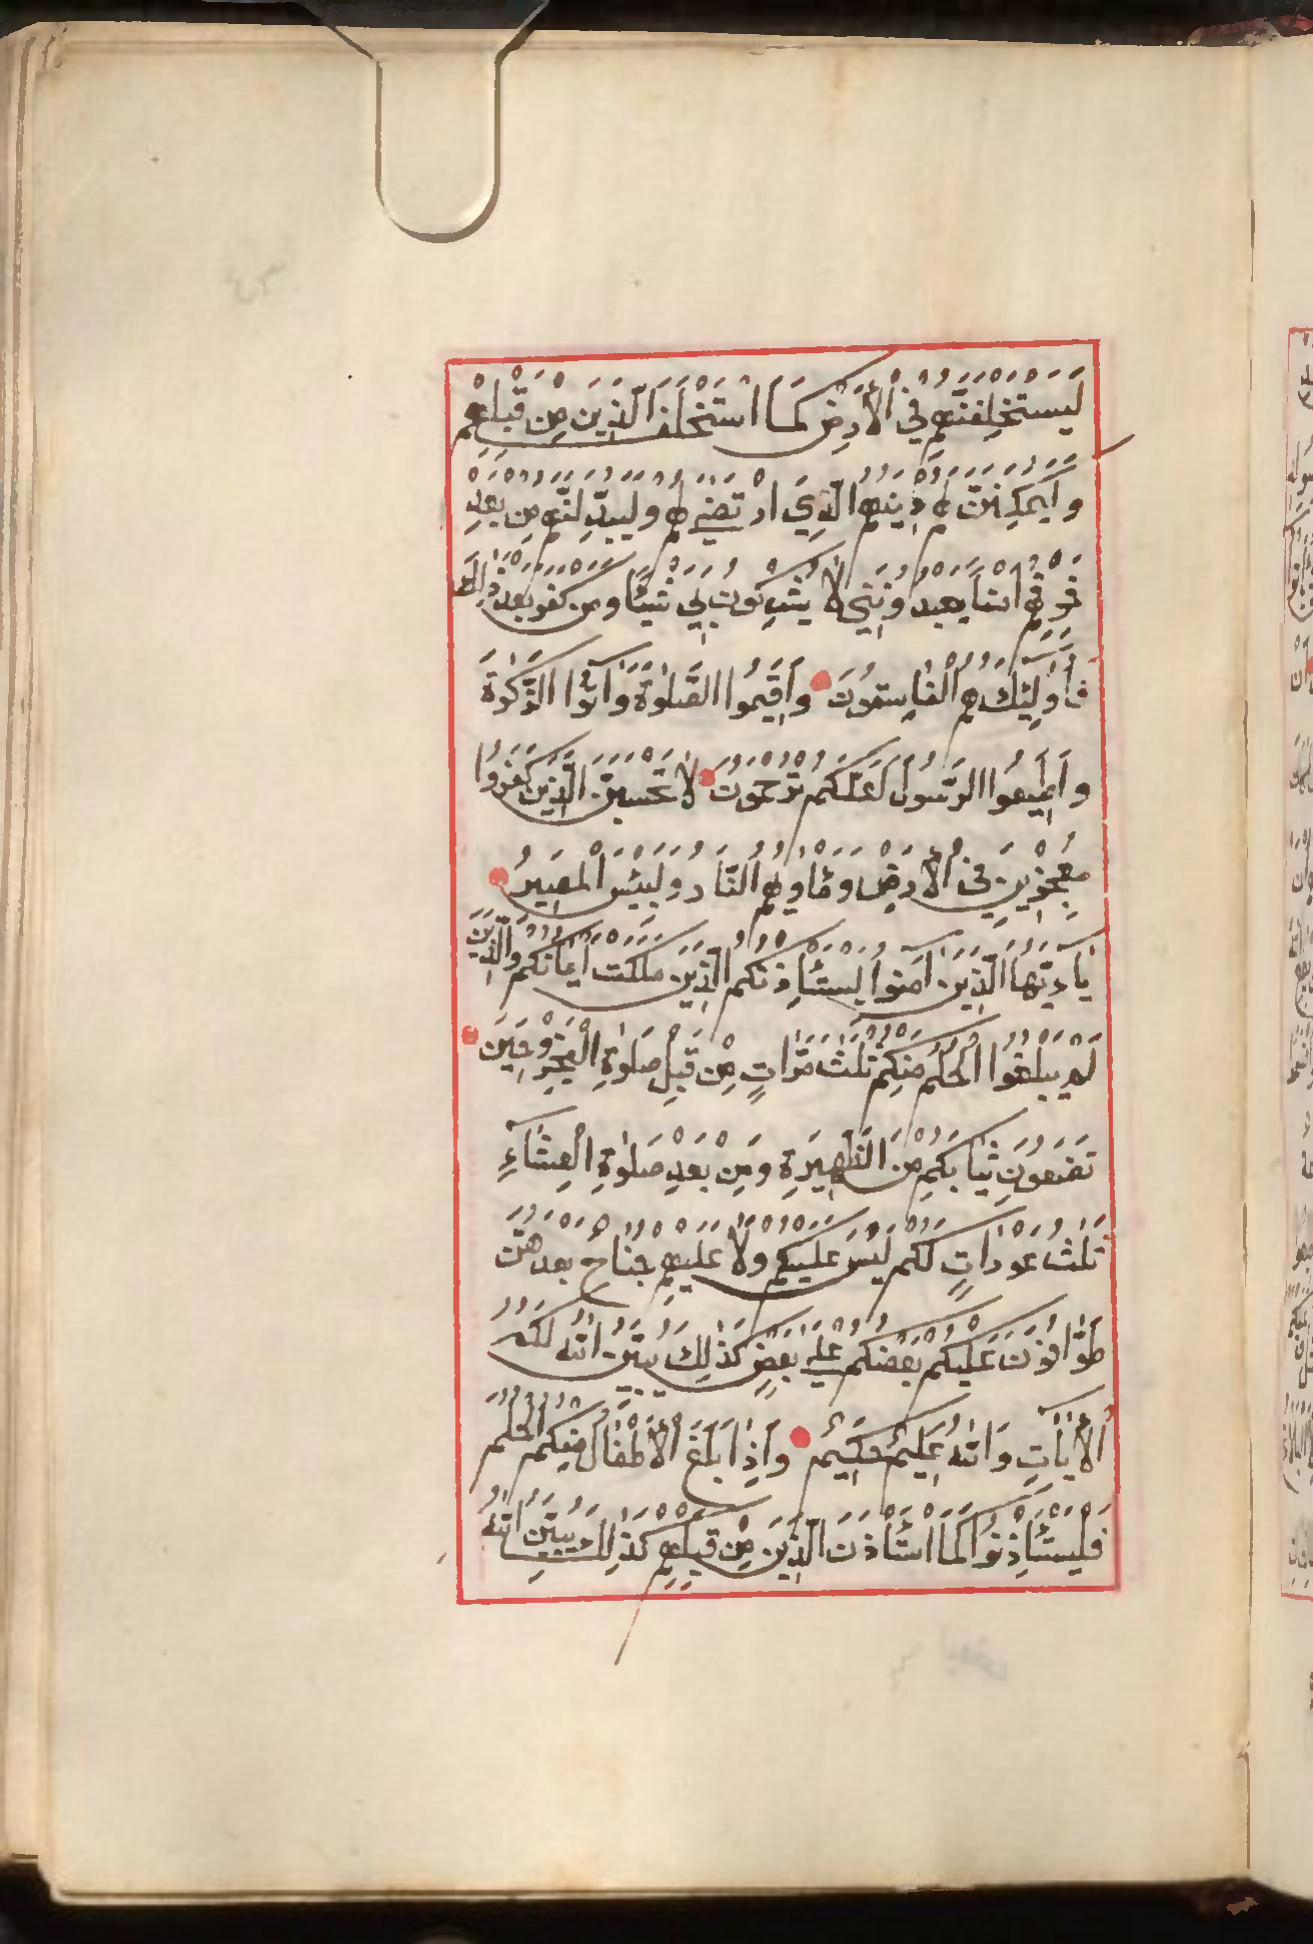 لَيَسْتَخْلِفَنَّهُمْ فِي الْأَرْضِ كَمَا اسْتَخْلَفَ الَّذِينَ مِنْ قَبْلِهِمْ
وَلَيُمَكِّنَنَّ لَهُمْ دِينَهُمُ الَّذِي ارْتَضٰى لَهُمْ وَلَيُبَدِّلَنَّهُمْ مِنْ بَعْدِ
خَوْفِهِمْ اَمْنًا يَعْبُدُونَنِي لَا يُشْرِكُونَ بِي شَيْئًا وَمَنْ كَفَرَ بَعْدَ ذٰلِكَ
فَأُولٰئِكَ هُمُ الْفَاسِقُونَ وَاَقِيمُوا الصَّلٰوةَ وَاٰتُوا الزَّكٰوةَ
وَاَطِيعُوا الرَّسُولَ لَعَلَّكُمْ تُرْحَمُونَ لَا تَحْسَبَنَّ الَّذِينَ كَفَرُوا
مُعْجِزِينَ فِي الْأَرْضِ وَمَأْوٰيهُمُ النَّارُ وَلَبِئْسَ الْمَصِيرُ
يَاۤ اَيُّهَا الَّذِينَ اٰمَنُوا لِيَسْتَأْذِنْكُمُ الَّذِينَ مَلَكَتْ اَيْمَانُكُمْ وَالَّذِينَ
لَمْ يَبْلُغُوا الْحُلُمَ مِنْكُمْ ثَلٰثَ مَرَّاتٍ مِنْ قَبْلِ صَلٰوةِ الْفَجْرِ وَحِينَ
تَضَعُونَ ثِيَابَكُمْ مِنَ الظَّهِيرَةِ وَمِنْ بَعْدِ صَلٰوةِ الْعِشَاۤءِ
ثَلٰثُ عَوْرَاتٍ لَكُمْ لَيْسَ عَلَيْكُمْ وَلَا عَلَيْهِمْ جُنَاحٌ بَعْدَهُنَّ
طَوَّافُونَ عَلَيْكُمْ بَعْضُكُمْ عَلٰى بَعْضٍ كَذٰلِكَ يُبَيِّنُ اللّٰهُ لَكُمُ
الْأٰيَاتِ وَاللّٰهُ عَلِيمٌ حَكِيمٌ وَاِذَا بَلَغَ الْأَطْفَالُ مِنْكُمُ الْحُلُمَ
فَلْيَسْتَأْذِنُوا كَمَا اسْتَأْذَنَ الَّذِينَ مِنْ قَبْلِهِمْ كَذٰلِكَ يُبَيِّنُ اللّٰهُ